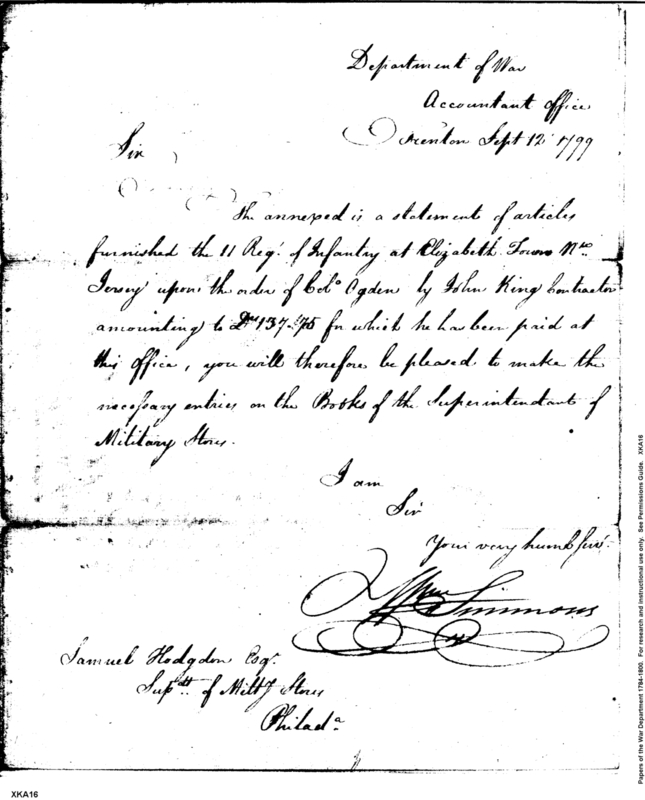 Department of War
Accountant Office
Trenton Sept 12 1799
Sir
The annexed is a statement of articles
furnished the 11 Regt of Infantry at Elizabeth Town New
Jersey upon the order of Colo Ogden by John King Contractor
amounting to Drs 137.75 for which he has been paid at
this office, you will therefore be pleased to make the
necessary entries on the Books of the Superintendant of
Military Stores.
I am
Sir
Your very humb Servt
Wm Simmons
Samuel Hodgdon Esqr.
Supdtt of Milty Stores
Philada.
Papers of the War Department 1784-1800. For research and instructional use only. See Permissions Guide. XKA16
XKA16